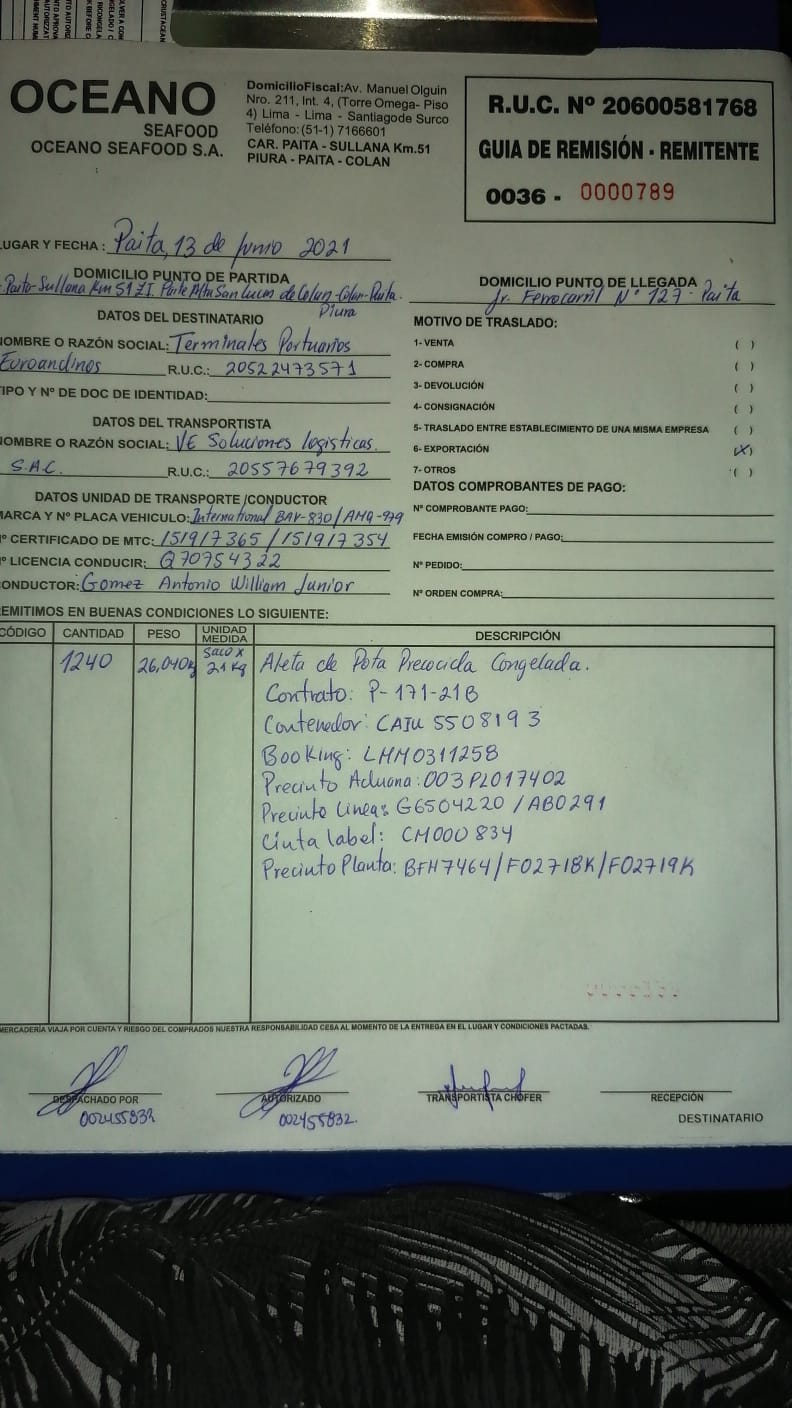 OCEANO
SEAFOOD
OCEANO SEAFOOD S.A.
DomicilioFiscal:Av. Manuel Olguin
Nro. 211, Int. 4, (Torre Omega- Piso
4) Lima - Lima - Santiagode Surco
Teléfono: (51-1) 7166601
CAR. PAITA - SULLANA Km.51
PIURA - PAITA - COLAN
R.U.C. Nº 20600581768
GUIA DE REMISIÓN - REMITENTE
0036 - 0000789
LUGAR Y FECHA : Paita, 13 de Junio 2021
DOMICILIO PUNTO DE PARTIDA
Paita-Sullana Km 51 Z.I. Parte Alta San Lucas de Colan-Colan-Paita-
Piura
DOMICILIO PUNTO DE LLEGADA
Jr. Ferrocarril Nº 127 - Paita
DATOS DEL DESTINATARIO
NOMBRE O RAZÓN SOCIAL: Terminales Portuarios
Euroandinos R.U.C.: 20522473571
TIPO Y Nº DE DOC DE IDENTIDAD:
DATOS DEL TRANSPORTISTA
NOMBRE O RAZÓN SOCIAL: VE Soluciones logísticas
S.A.C. R.U.C.: 20557679392
DATOS UNIDAD DE TRANSPORTE /CONDUCTOR
MARCA Y Nº PLACA VEHICULO: International BAV-830/AMQ-979
Nº CERTIFICADO DE MTC: 151917365 / 151917354
Nº LICENCIA CONDUCIR: Q70754322
CONDUCTOR: Gomez Antonio William Junior
MOTIVO DE TRASLADO:
1- VENTA ( )
2- COMPRA ( )
3- DEVOLUCIÓN ( )
4- CONSIGNACIÓN ( )
5- TRASLADO ENTRE ESTABLECIMIENTO DE UNA MISMA EMPRESA ( )
6- EXPORTACIÓN (X)
7- OTROS ( )
DATOS COMPROBANTES DE PAGO:
Nº COMPROBANTE PAGO:
FECHA EMISIÓN COMPRO / PAGO:
Nº PEDIDO:
Nº ORDEN COMPRA:
REMITIMOS EN BUENAS CONDICIONES LO SIGUIENTE:
CÓDIGO CANTIDAD PESO UNIDAD MEDIDA DESCRIPCIÓN
1240 26,040kg Saco x 21 Kg Aleta de Pota Precocida Congelada.
Contrato: P-171-21B
Contenedor: CAIU 5508193
Booking: LMM0311258
Precinto Aduana: 003PL017402
Precinto Linea: G6504220 / AB0291
Cinta label: CM000834
Precinto Planta: BFH7464/F02718K/F02719K
MERCADERÍA VIAJA POR CUENTA Y RIESGO DEL COMPRADOS NUESTRA RESPONSABILIDAD CESA AL MOMENTO DE LA ENTREGA EN EL LUGAR Y CONDICIONES PACTADAS.
DESPACHADO POR
002455832
AUTORIZADO
002455832.
TRANSPORTISTA CHOFER
RECEPCIÓN
DESTINATARIO